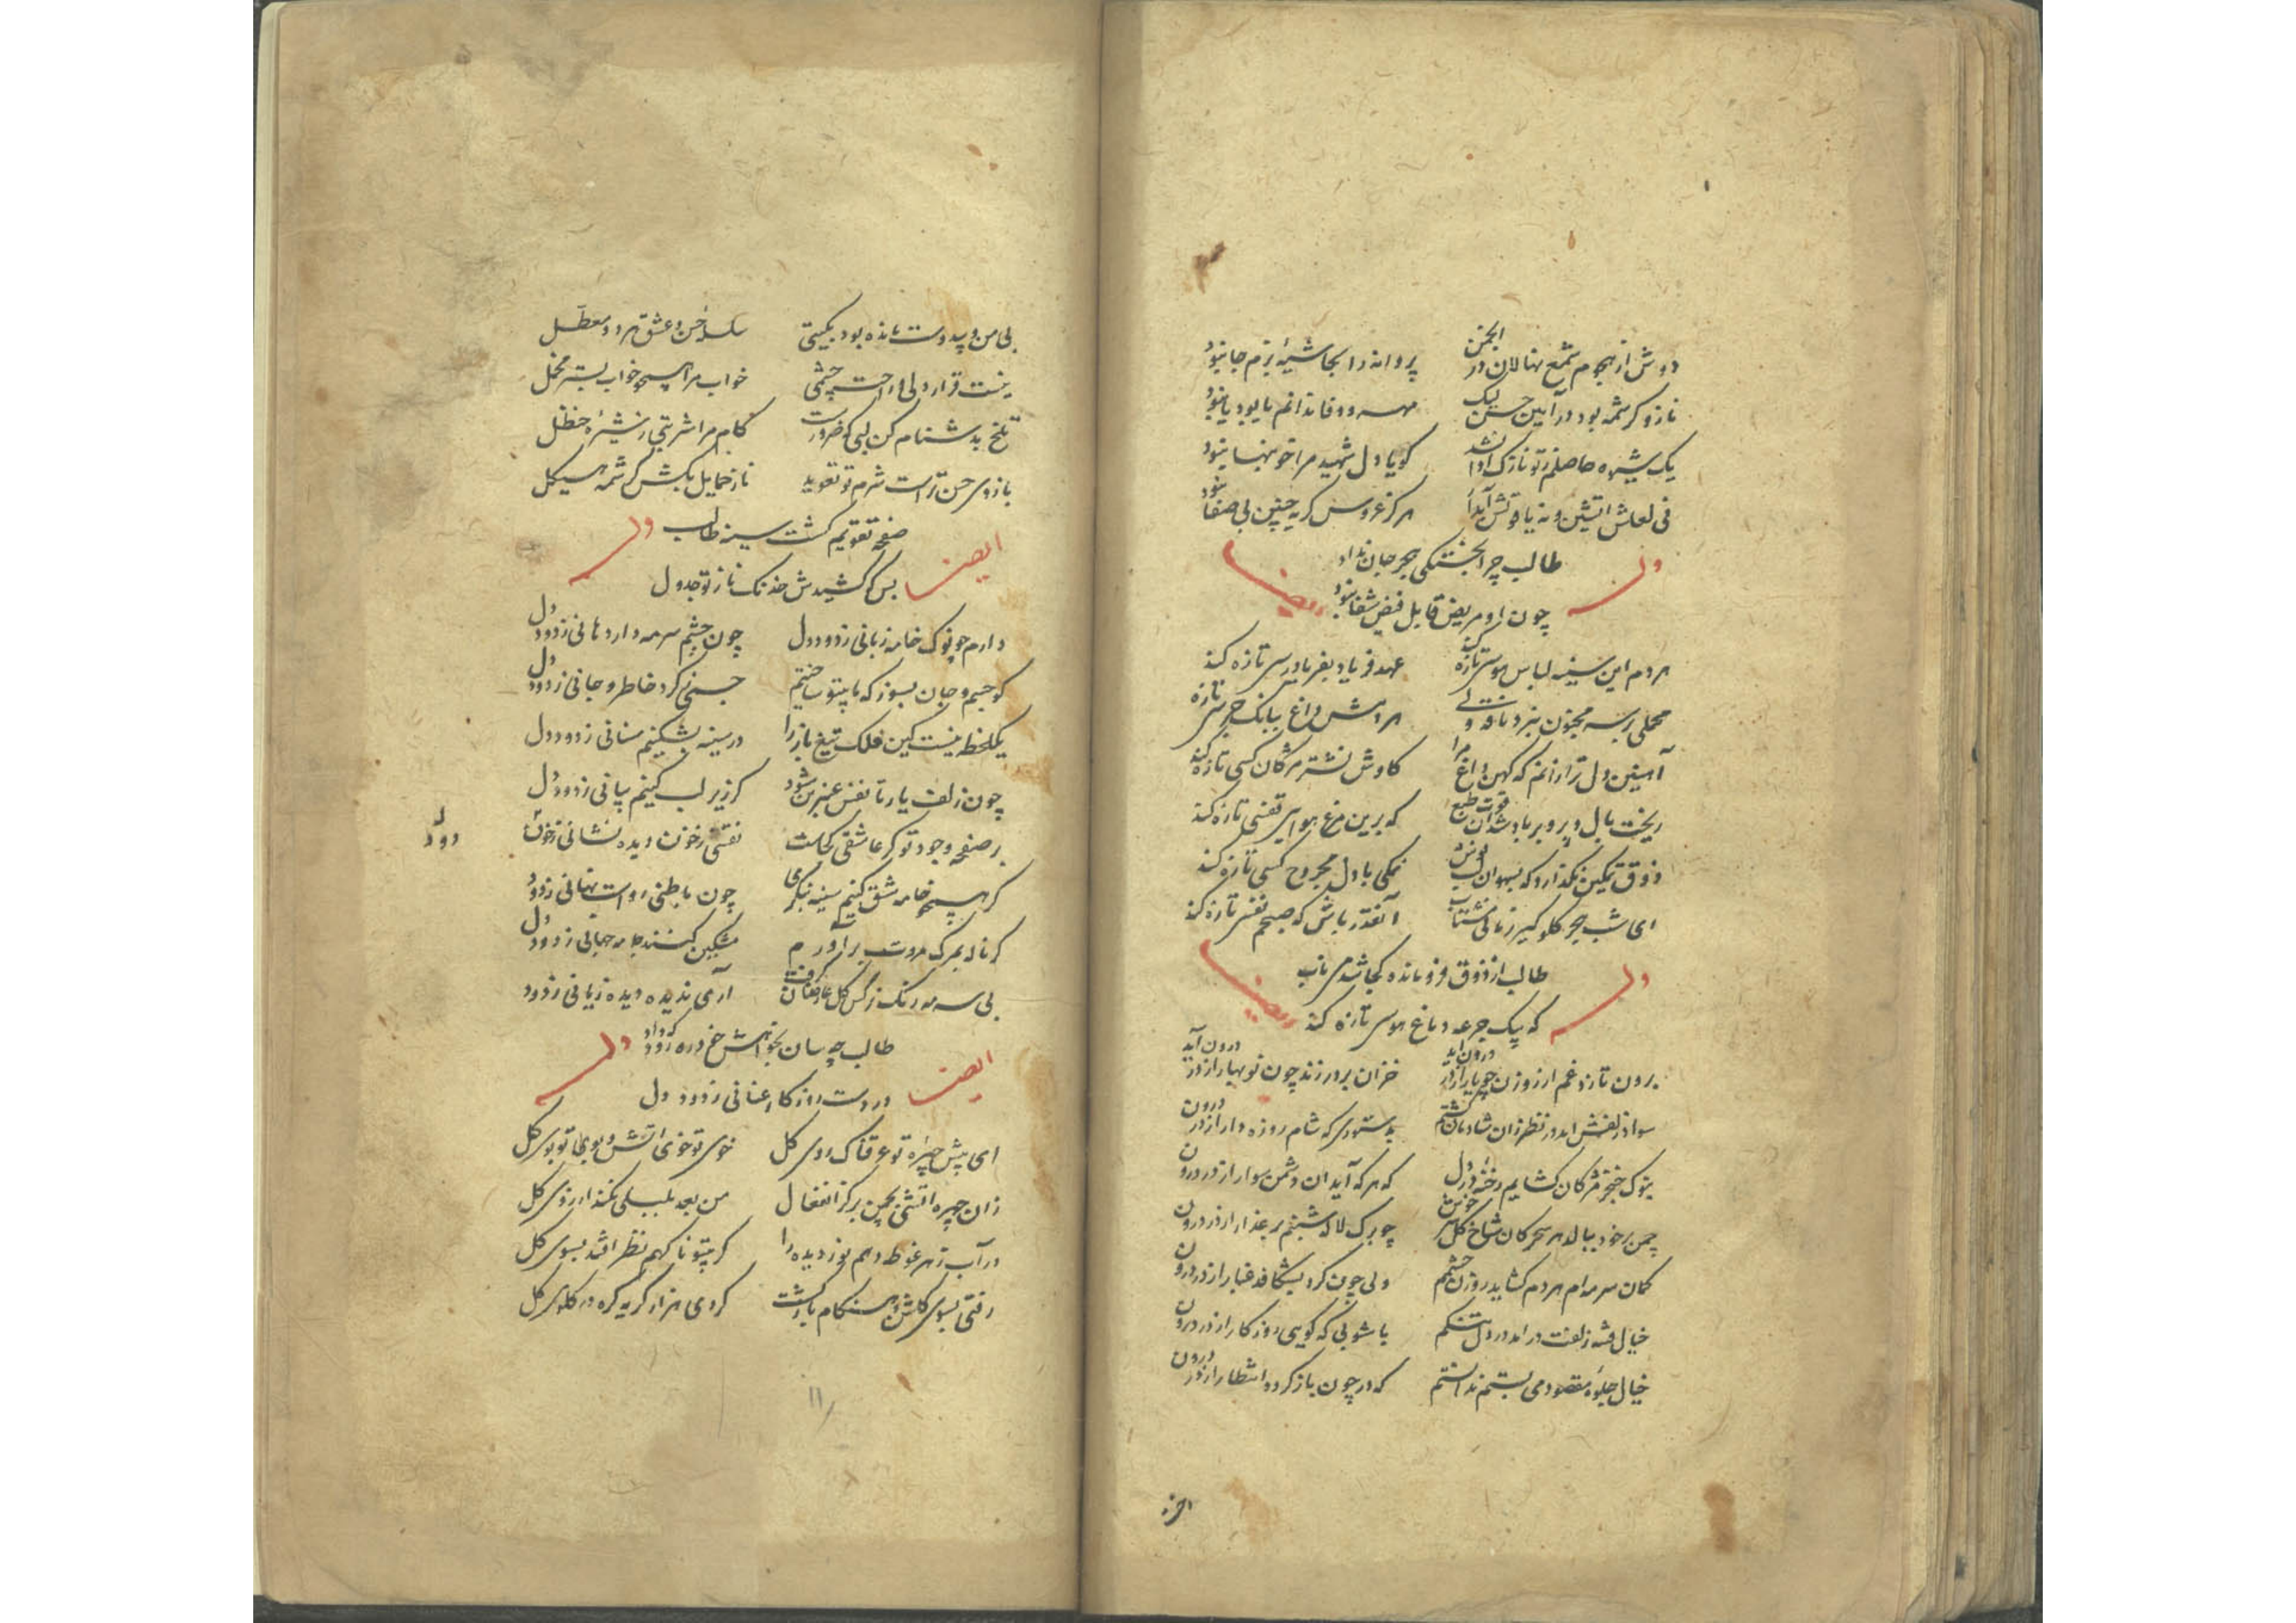 دوش از هجوم شمع نهالان در انجمن پروانه را بجاشیهٔ بزم جا نبود
ناز و کرشمه بود در آیین حسن لیک مهر و وفا ندانم یا بود یا نبود
یک شیره حاصلم ز تو نازک ادا نشد کویا دل شهید مرا خونبها نبود
نی لعلش آتشین و نه یاقوتش آبدار هرکز عروس کریه چنین بی صفا نبود
طالب چرا بخستکی هجر جان نداد
وله ایضا
چون او مریض قابل فیض شفا نبود
هردم این سینه لباس هوسی تازه کند عهد فریاد بفریادرسی تازه کند
محملی بر سر مجنون نبرد ناقه ولی هر دمش داغ ببانک جرسی تازه
آهنین دل تر ازانم که کهن داغ مرا کاوش نشتر مژکان کسی تازه کند
ریخت بال و پر و بر باد شد آن قوت طبع که برین مرغ هوای قفسی تازه کند
ذوق تمکین نکذارد که بسهوان لب نوش نمکی با دل مجروح کسی تازه کند
ای شب هجر کلوکیر زمانی مشتاب آنقدر باش که صبحم نفسی تازه کند
طالب از ذوق فرومانده کجا شد می ناب
وله ایضا
که بیک جرعه دماغ هوسی تازه کند
برون تازد غم از روزن چو یار از در درون آید خزان بر در زند چون نوبهار از در درون آید
سواد زلفش آمد در نظر زان شادمان کشتم بدستوری که شام روزه دار از در درون
بنوک خنجر مژکان کشایم رخنه در دل که هرکه آید ان دشمن سوار از در درون
چمن بر خود ببالد هر سحر کان شاخ کل سرخوش چو برک لاله شبنم بر عذار از در درون
کمان سرمه‌ام هردم کشاید روزن چشمم ولی چون کرد بشکافد غبار از در درون
خیال فتنه زلفت در آمد در دل تنکم باشوبی که کویی روزکار از در درون
خیال جلوه مقصود می بستم ندانستم که در چون باز کردد انتظار از در درون
بی من و بیدوست مانده بود بکیتی سلسلهٔ حسن و عشق هر دو معطل
نیست قرار دلی ز راحت چشمی خواب مرا همچو خواب بستر مخمل
تلخ بدشنام کن لبی که ضرورت کام مرا شربتی ز شیرهٔ حنظل
بازوی حسن تراست شرم تو تعویذ ناز حمایل بکش کرشمه هیکل
صفحه تقویم کشت سینه طالب
ایضا وله
بس که کشیدش خدنک ناز تو جدول
دارم چو نوک خامه زبانی ز دود دل چون چشم سرمه دار دهانی ز دود دل
کو جسم و جان بسوز که ما بیتو ساختیم جسمی ز کرد خاطر و جانی ز دود دل
یکلحظه نیست کین فلک تیغ باز را در سینه نشکنیم سنانی ز دود دل
چون زلف یار تا نفس عنبرین شود کز زیر لب کنیم بیانی ز دود دل
بر صفحه وجود تو کر عاشقی کجاست نقشی ز خون دیده نشانی ز خون دل
دود
کر همچو خامه شق کنیم سینه بنکری چون باطنی دوات نهانی ز دود
کر ناله بمرک مروت برآورم مشکین کنند جامه جهانی ز دود دل
بی سرمه رنک نرکس کل عارضان کرفت آری ندیده دیده زیانی ز دود
طالب چسان بخواهش غم ره دود که داد
ایضا وله
در دست روزکار عنانی ز دود دل
ای پیش چهره تو عرقناک روی کل خوی تو خوی آتش و بوی تو بوی کل
زان چهره آتشی بچمن برکز انفعال من بعد بلبلی نکند ارزوی کل
در آب زهر غوطه دهم نور دیده را کر بیتو ناکهم نظر افتد بسوی کل
رفتی بسوی کلشن و هنکام بازکشت کردی هزار کریه کره در کلوی کل
۱۱